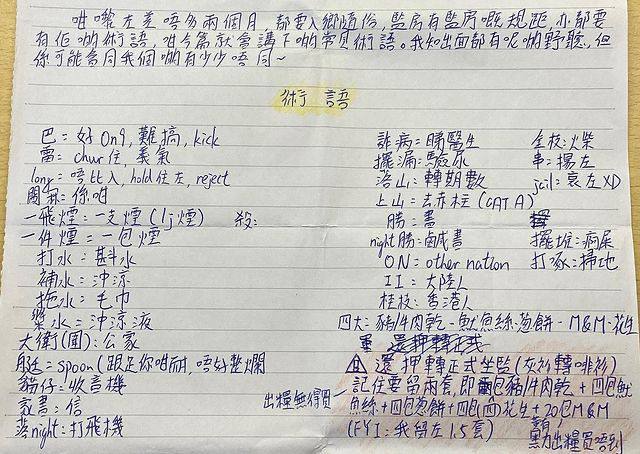 咁嚟左差唔多兩個月，都要入鄉隨俗，監房有監房嘅規距，亦都要
有佢啲術語，咁今篇就會講下啲常見術語。我知出面都有呢啲野聽，但
係可能會同我個啲有少少唔同~
術語
巴：好On9，難搞，kick
雷：chur住，義氣
long：唔比入，hold住左，reject
周郁：係咁
一飛煙：一支煙（lj煙） 殺：
一件煙＝一包煙
打水：斟水
補水：沖涼
拖水：毛巾
漿水：沖涼液
大衛(圍)：公家
艇：spoon(跟足你咁耐，唔好整爛
貓仔：收音機
家書：信
night：打飛機
詐病：睇醫生
擺漏：驗尿
洛山：轉期數
上山：去赤柱(CAT A)
勝：書
night勝：鹹書
ON：other nation
II：大陸人
桂枝：香港人
全枝：火柴
串：揚左
jail：衰左XD
擺堆：痾屎
打豕：掃地
四大：豬/牛肉乾－魷魚絲－葱餅－M&M－花生
還押轉正式坐監(灰衫轉啡衫)
出糧無得買－記住要留兩套，即四包豬/牛肉乾＋四包魷
魚絲＋四包葱餅＋四包花生＋20包M&M
(FYI：我留左15套)
出糧買唔到